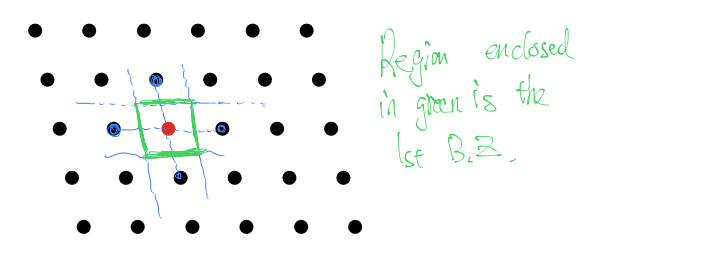 Region enclosed
in green is the
1st B.Z.